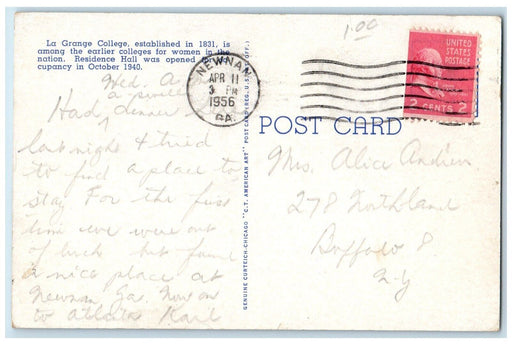 La Grange College, established in 1831, is
among the earlier colleges for women in the
nation. Residence Hall was opened for oc-
cupancy in October 1940.
1.00
UNITED
STATES
POSTAGE
2 CENTS 2
NEWNAN
APR 11
3 PM
1956
GA.
Wed. A
Had dinner
last night & tried
to find a place to
stay For the first
time we were out
of luck but found
a nice place at
Newnan Ga. Now on
to Atlanta Karl
GENUINE CURTEICH-CHICAGO "C.T. AMERICAN ART" POST CARD (REG. U.S. PAT. OFF.)
POST CARD
Mrs. Alice Andrew
278 Northland
Buffalo 8
N-y